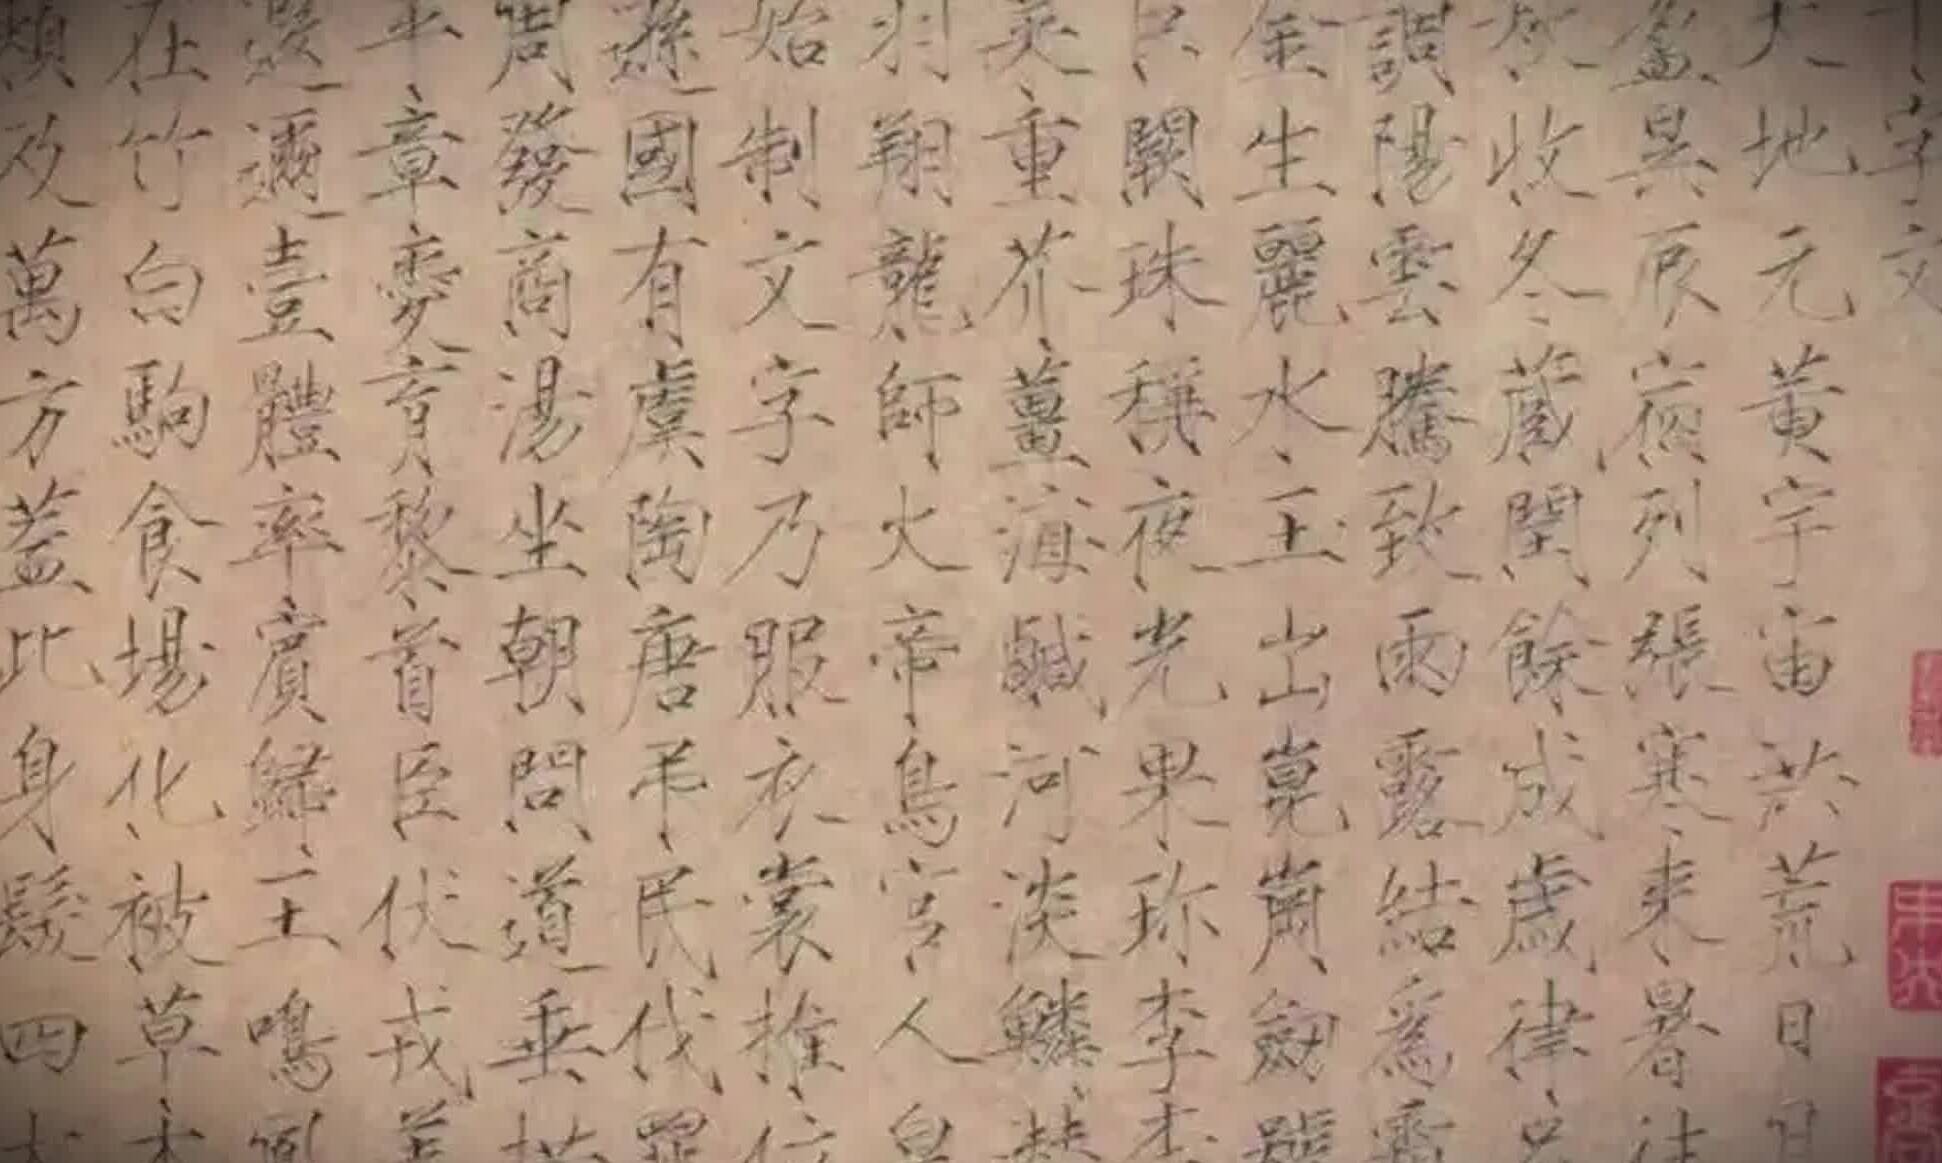 千字文
天地元黃宇宙洪荒日月
盈昃辰宿列張寒來暑往
秋收冬藏閏餘成歲律呂
調陽雲騰致雨露結爲霜
金生麗水玉出崑崗劒號
巨闕珠稱夜光果珎李柰
菜重芥薑海鹹河淡鱗潛
羽翔龍師火帝鳥官人皇
始制文字乃服衣裳推位
遜國有虞陶唐弔民伐罪
周發商湯坐朝問道垂拱
平章愛育黎首臣伏戎羌
遐邇壹體率賓歸王鳴鳳
在竹白駒食場化被草木
賴及萬方蓋此身髮四大